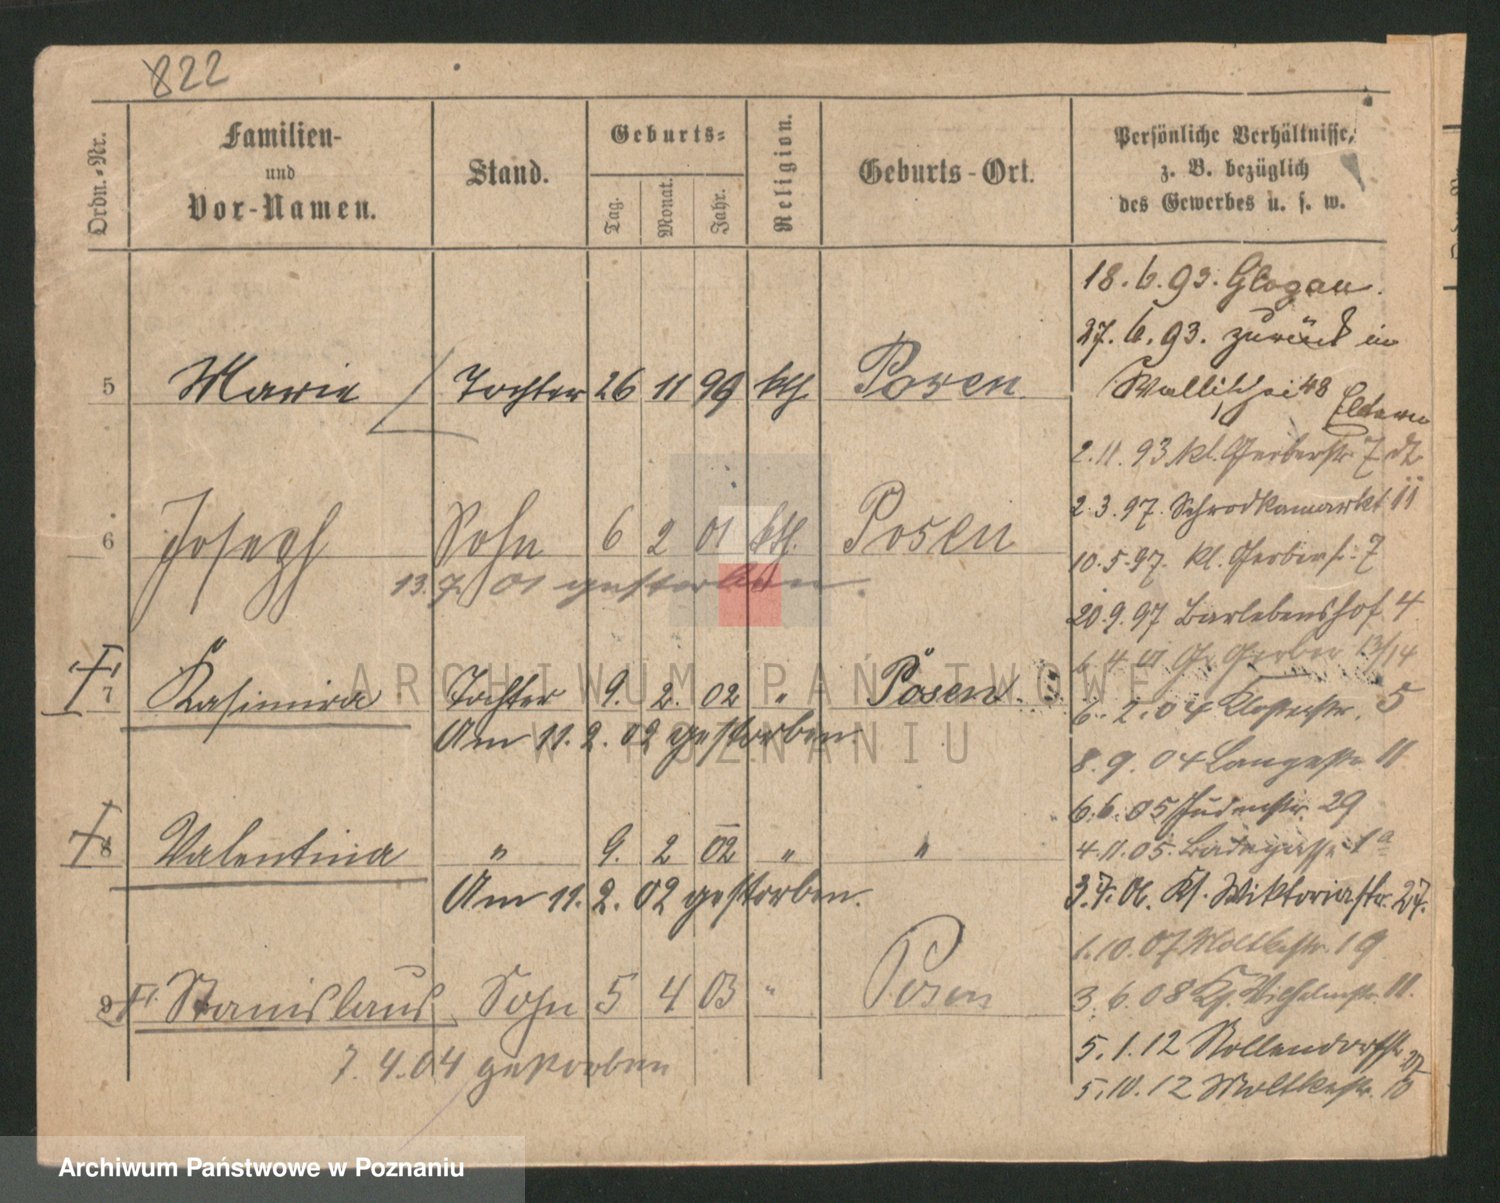 822
Ordn.-Nr.
Familien-
und
Vor-Namen.
Stand.
Geburts-
Tag.
Monat.
Jahr.
Religion.
Geburts-Ort.
Persönliche Verhältnisse,
z. B. bezüglich
des Gewerbes u. s. w.
5 Marie Tochter 26 11 99 kth Posen
6 Joseph Sohn 6 2 01 kth. Posen
13.7.01 gestorben.
7 Kasimira Tochter 9. 2. 02 " Posen
Am 11.2.02 gestorben.
8 Valentina " 9. 2 02 " "
Am 11.2.02 gestorben.
9 Stanislaus Sohn 5 4 03 " Posen
7.4.04 gestorben
18.6.93. Glogau.
27.6.93. zurück in
Wallischei 48 Eltern
2.11.93 kl. Gerberstr. 7
2.3.97. Schrodkamarkt 11
10.5.97. kl. Gerberstr. 7
20.9.97 Barlebenshof 4
Gr Gerber 13/14
6.2.04 Klosterstr. 5
8.9.04 Langestr. 11
6.6.05 Judenstr. 29
4.11.05. Badegasse 1a
3.7.06. Kl. Wiktoriastr. 27.
1.10.07 Moltkestr. 19
3.6.08 Kg. Wilhelmstr. 11.
5.1.12 Nollendorfstr. 27
5.10.12 Moltkestr. 10
ARCHIWUM PAŃSTWOWE
W POZNANIU
Archiwum Państwowe w Poznaniu